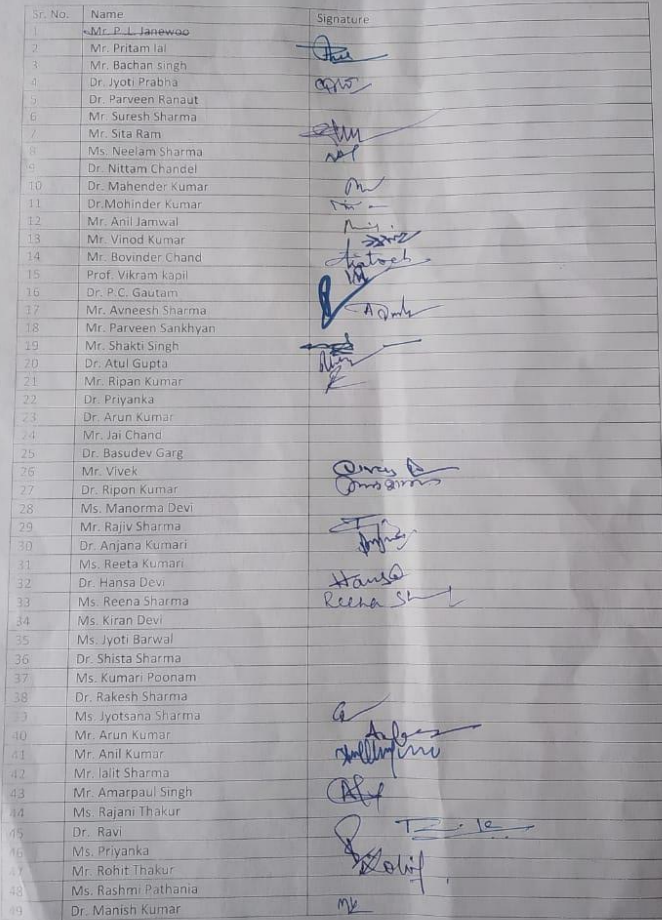 Sr. No. Name Signature
1 Mr. P.L. Janewoo
2 Mr. Pritam lal
3 Mr. Bachan singh
4 Dr. Jyoti Prabha
5 Dr. Parveen Ranaut
6 Mr. Suresh Sharma
7 Mr. Sita Ram
8 Ms. Neelam Sharma
9 Dr. Nittam Chandel
10 Dr. Mahender Kumar
11 Dr.Mohinder Kumar
12 Mr. Anil Jamwal
13 Mr. Vinod Kumar
14 Mr. Bovinder Chand
15 Prof. Vikram kapil
16 Dr. P.C. Gautam
17 Mr. Avneesh Sharma
18 Mr. Parveen Sankhyan
19 Mr. Shakti Singh
20 Dr. Atul Gupta
21 Mr. Ripan Kumar
22 Dr. Priyanka
23 Dr. Arun Kumar
24 Mr. Jai Chand
25 Dr. Basudev Garg
26 Mr. Vivek
27 Dr. Ripon Kumar
28 Ms. Manorma Devi
29 Mr. Rajiv Sharma
30 Dr. Anjana Kumari
31 Ms. Reeta Kumari
32 Dr. Hansa Devi Hansa
33 Ms. Reena Sharma Reena
34 Ms. Kiran Devi
35 Ms. Jyoti Barwal
36 Dr. Shista Sharma
37 Ms. Kumari Poonam
38 Dr. Rakesh Sharma
39 Ms. Jyotsana Sharma
40 Mr. Arun Kumar
41 Mr. Anil Kumar
42 Mr. lalit Sharma
43 Mr. Amarpaul Singh
44 Ms. Rajani Thakur
45 Dr. Ravi
46 Ms. Priyanka
47 Mr. Rohit Thakur Rohit
48 Ms. Rashmi Pathania
49 Dr. Manish Kumar MK